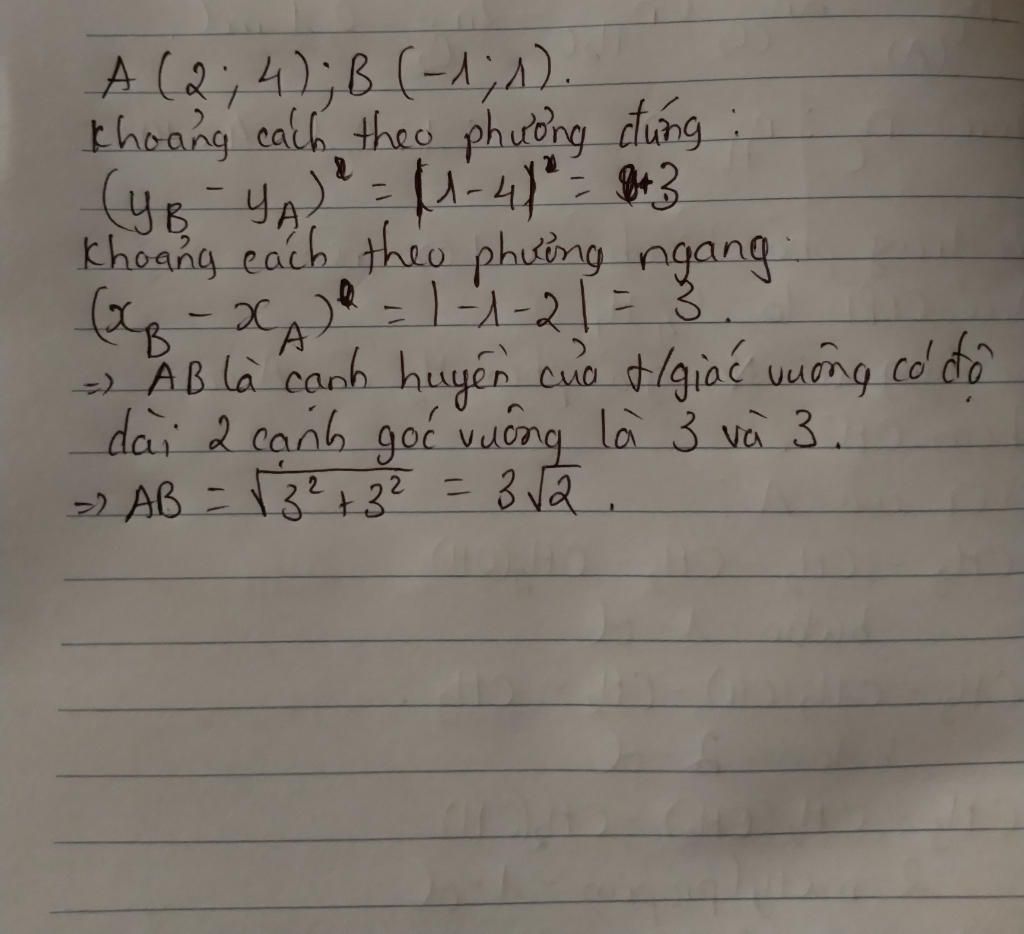 A (2; 4); B (-1; 1).
Khoảng cách theo phưởng đứng :
(y_B - y_A) = |1-4| = 3
Khoảng cách theo phưởng ngang:
(x_B - x_A) = |-1-2| = 3.
=> AB là cạnh huyền của t/giác vuông có độ
dài 2 cạnh góc vuông là 3 và 3.
=> AB = √(3² + 3²) = 3√2.